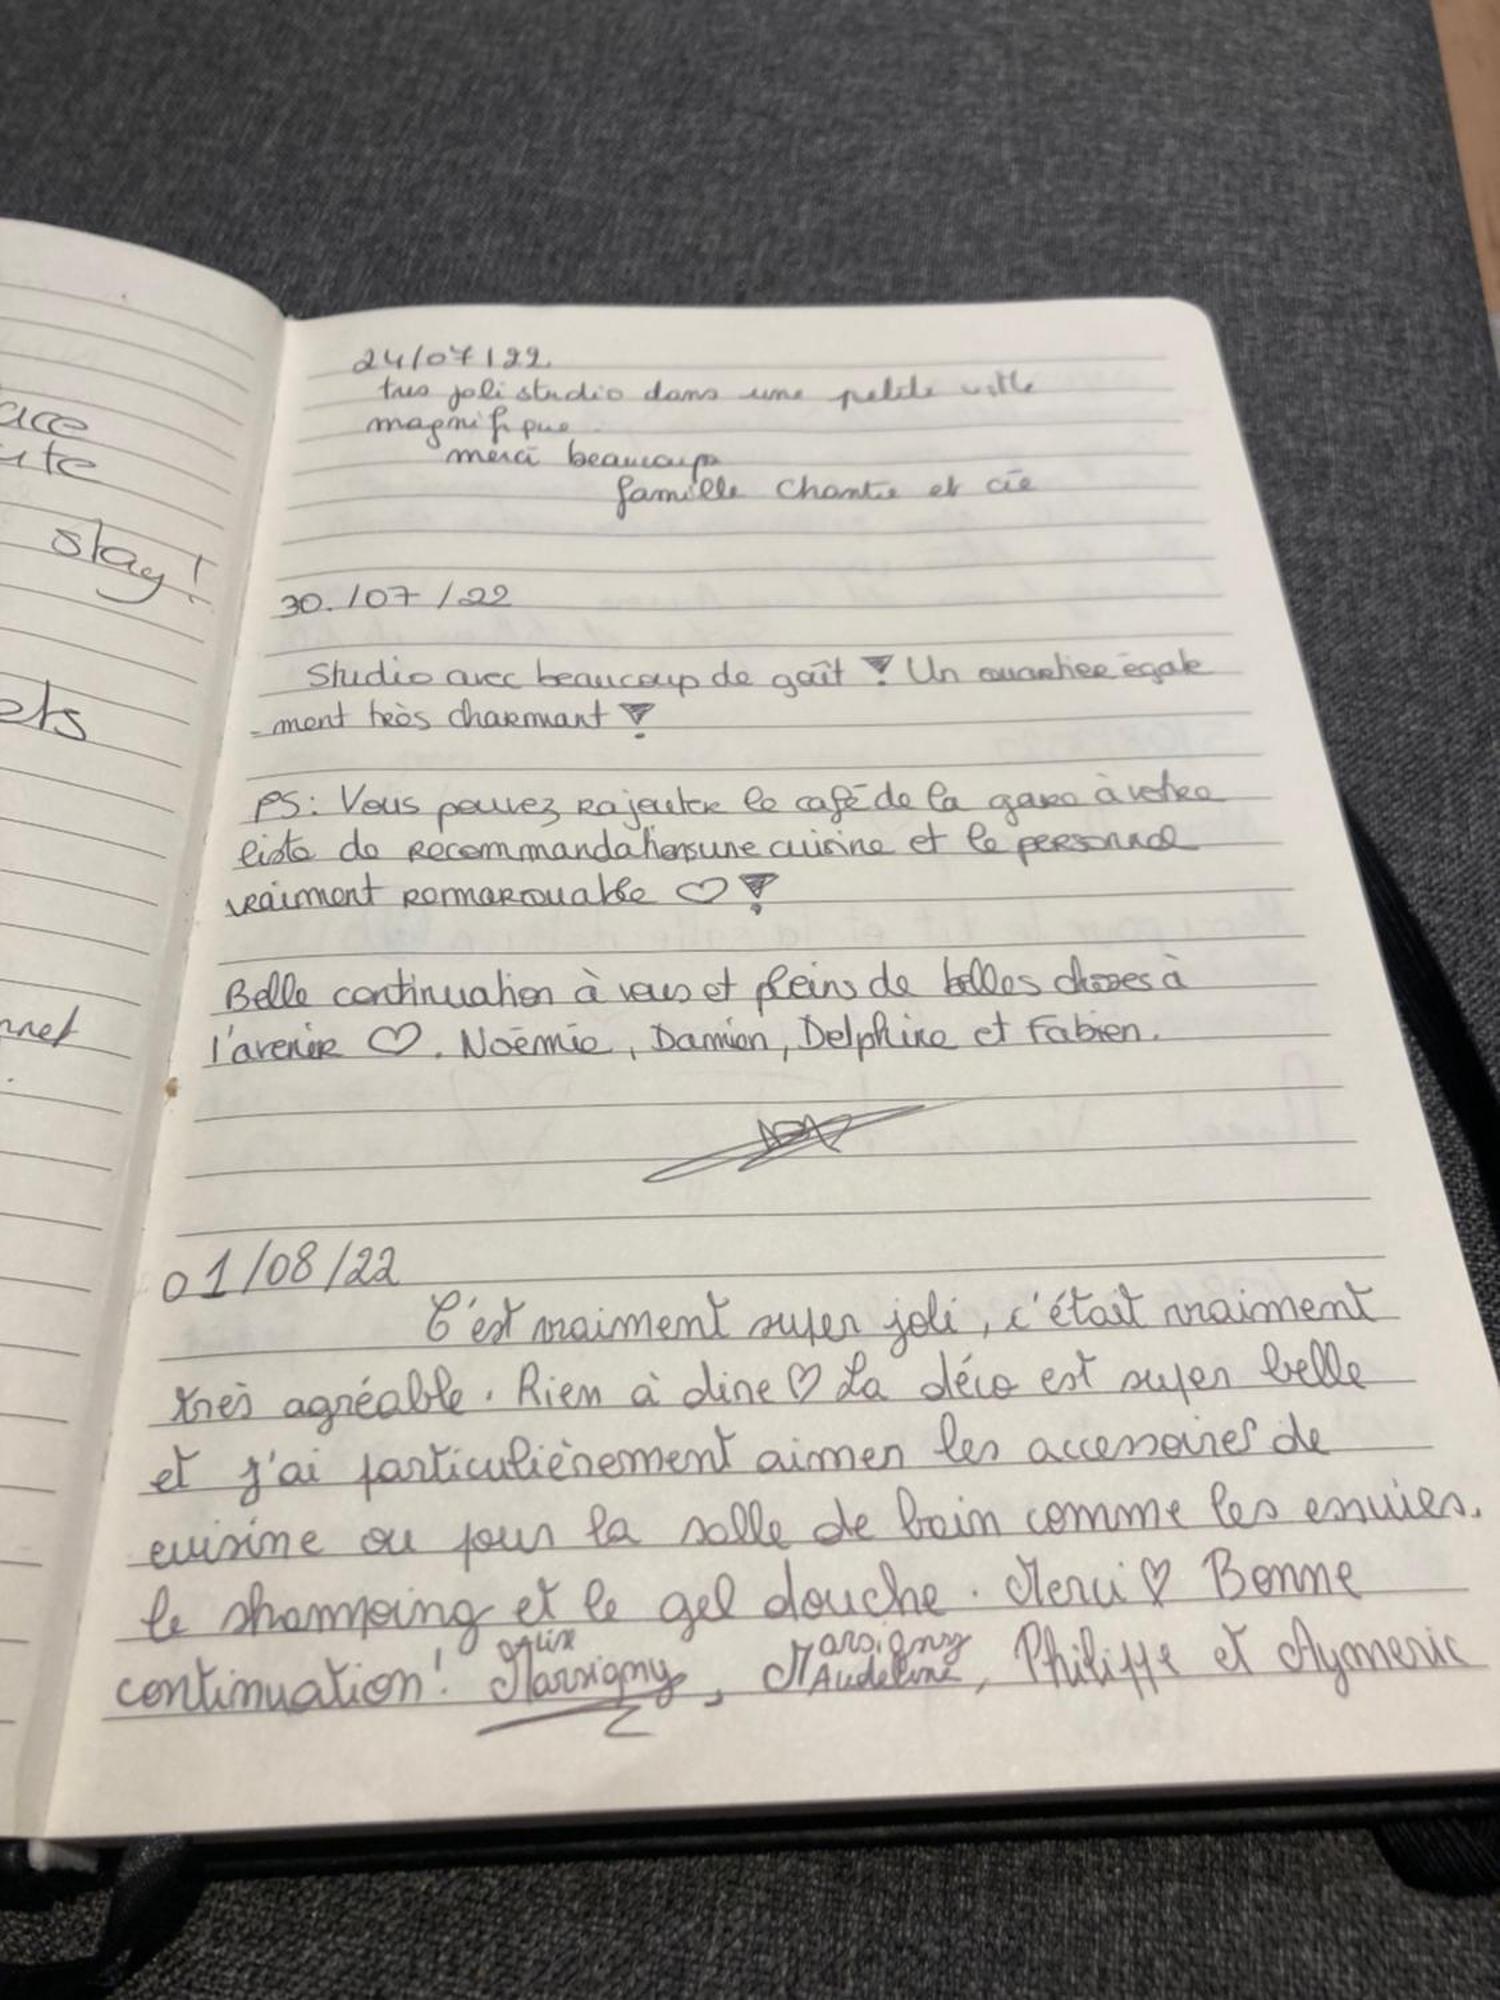 ace
ute
stay!
ets
nnet
24/07/22.
tres joli studio dans une petite ville
magnifique.
merci beaucoup
famille Chantie et cie
30./07/22
Studio avec beaucoup de goût ! Un quartier égale
-ment très charmant !
PS: Vous pouvez rajouter le café de la gare à votre
liste de recommandations une cuisine et le personnel
vraiment remarquable ♡ !
Belle continuation à vous et pleins de belles choses à
l'avenir ♡. Noëmie, Damien, Delphine et Fabien.
01/08/22
C'est vraiment super joli, c'était vraiment
très agréable. Rien à dire ♡ La déco est super belle
et j'ai particulièrement aimer les accessoires de
cuisine ou pour la salle de bain comme les essuies,
le shampoing et le gel douche. Merci ♡ Bonne
continuation! Alix Marsigny, Marsigny Audeline, Philippe et Aymeric